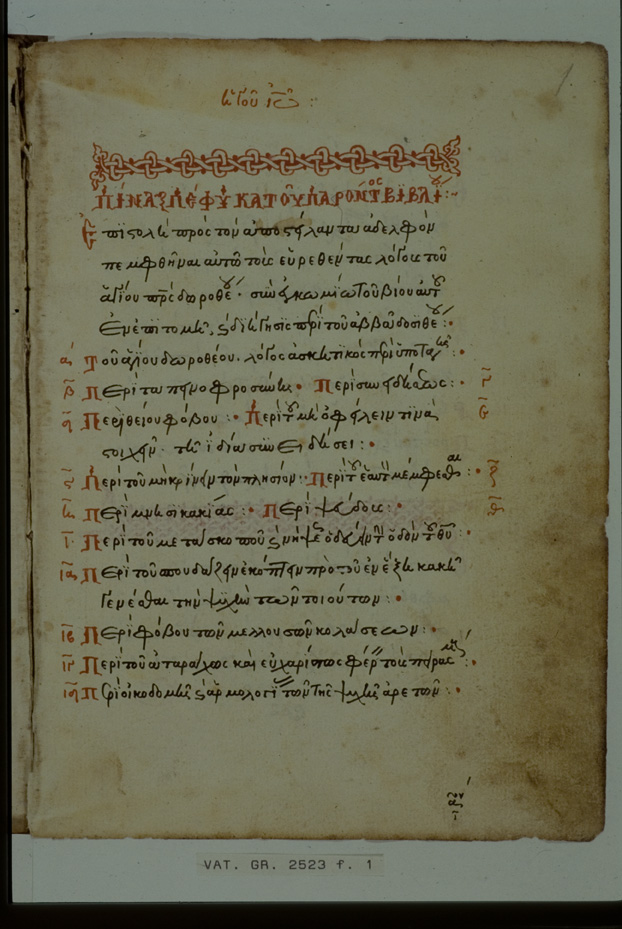 1
τοῦ
ΠΙΝΑΞ ΠΕΦΥΚΑ ΤΟΥ ΠΑΡΟΝΤΟΣ ΒΙΒΛΙ
Ἐπιστολὴ πρὸς τὸν ἀποστείλαντα ἀδελφὸν
πεμφθῆναι αὐτῶ τοὺς εὑρεθέντας λόγους τοῦ
ἁγίου πρς δωροθέου· σὺν ἐγκωμίω τοῦ βίου αὐτοῦ
Ἐν ἐπιτομῆ, διήγησις περὶ τοῦ ἀββᾶ δοσιθέου:
α Τοῦ ἁγίου δωροθέου· λόγος ἀσκητικὸς περὶ ὑποταγῆς:
β Περὶ ταπεινοφροσύνης· Περὶ συνειδήσεως: γ
δ Περὶ θείου φόβου: Περὶ τοῦ μὴ ὀφείλειν τινὰ ε
στοιχεῖν τῆ ἰδία συνειδήσει:
ς Περὶ τοῦ μὴ κρίνειν τὸν πλησίον· Περὶ τοῦ ἑαυτὸν μέμφεσθαι: ζ
η Περὶ μνησικακίας: Περὶ ψεύδους: θ
ι Περὶ τοῦ μετὰ σκοποῦ νήψεως ὁδεύειν τὴν ὁδὸν τοῦ θυ:
ια Περὶ τοῦ σπουδάζειν ἐκκόπτειν πρὸ τοῦ ἐν ἕξει κακῆ
γενέσθαι τὴν ψυχὴν τῶν τοιούτων:
ιβ Περὶ φόβου τῶν μελλουσῶν κολάσεων:
ιγ Περὶ τοῦ ἀταράχως καὶ εὐχαρίστως φέρειν τοὺς πειρασμούς:
ιδ Περὶ οἰκοδομῆς ἁρμολογίας τῶν τῆς ψυχῆς ἀρετῶν:
VAT. GR. 2523 f. 1